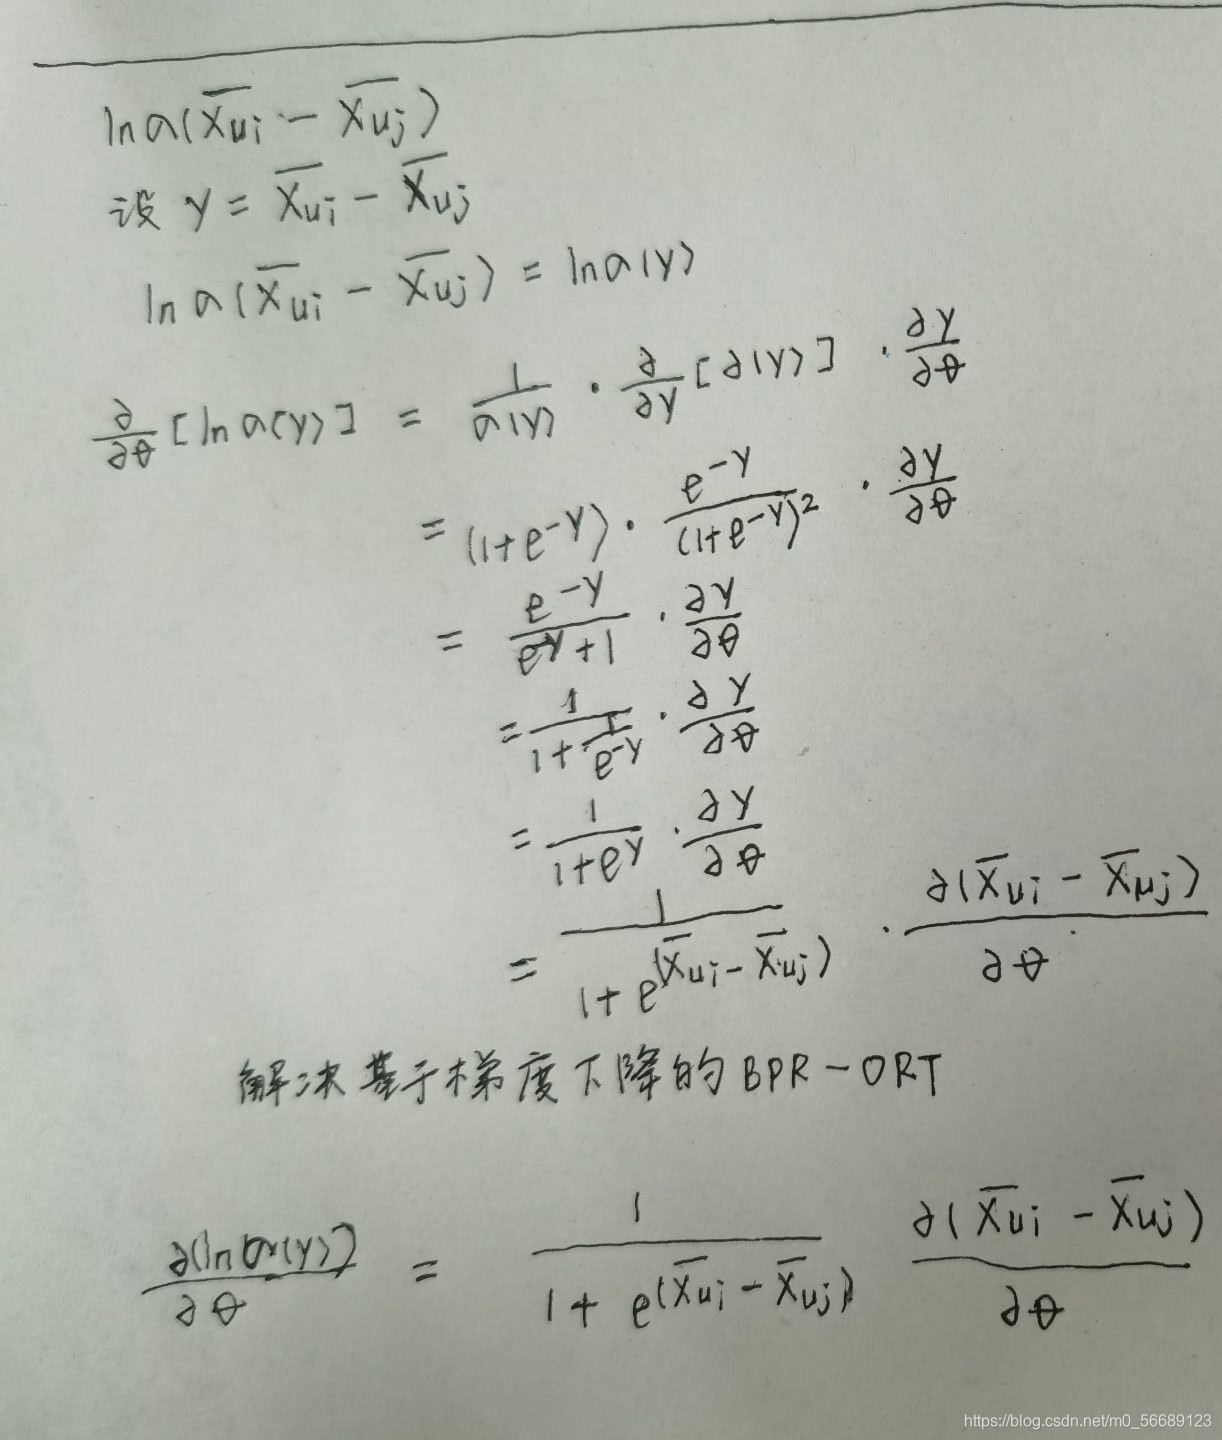 ln a(x̄ui - x̄uj)
设 y = x̄ui - x̄uj
ln a(x̄ui - x̄uj) = ln a(y)
∂/∂θ [ln a(y)] = 1/a(y) · ∂/∂y [∂(y)] · ∂y/∂θ
= (1+e^-y) · e^-y/(1+e^-y)² · ∂y/∂θ
= e^-y/(e^-y+1) · ∂y/∂θ
= 1/(1+1/e^-y) · ∂y/∂θ
= 1/(1+e^y) · ∂y/∂θ
= 1/(1+e^(x̄ui - x̄uj)) · ∂(x̄ui - x̄uj)/∂θ
解决基于梯度下降的BPR-ORT
∂[ln a(y)]/∂θ = 1/(1+e^(x̄ui - x̄uj)) ∂(x̄ui - x̄uj)/∂θ
https://blog.csdn.net/m0_56689123